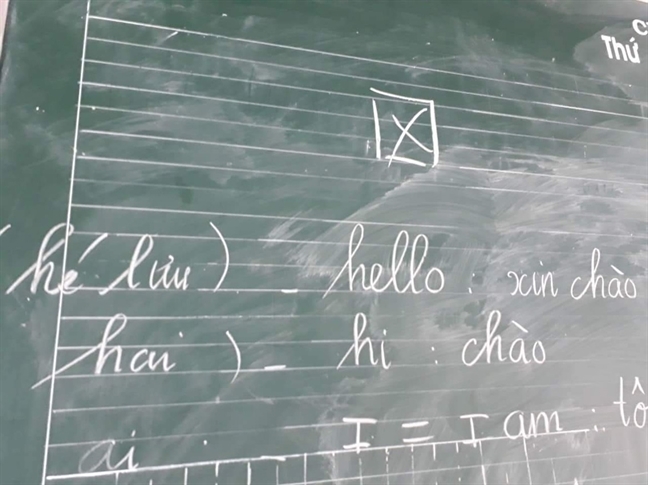 Thứ
X
(hé lưu) - hello : xin chào
(hai) - hi : chào
ai - I = I am : tô